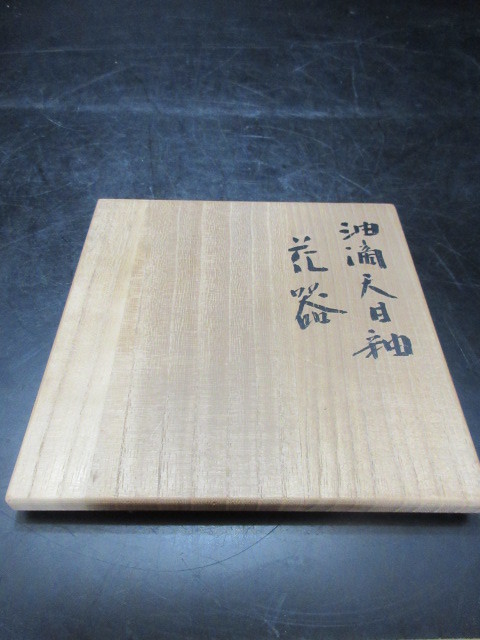 油滴天目釉
花器